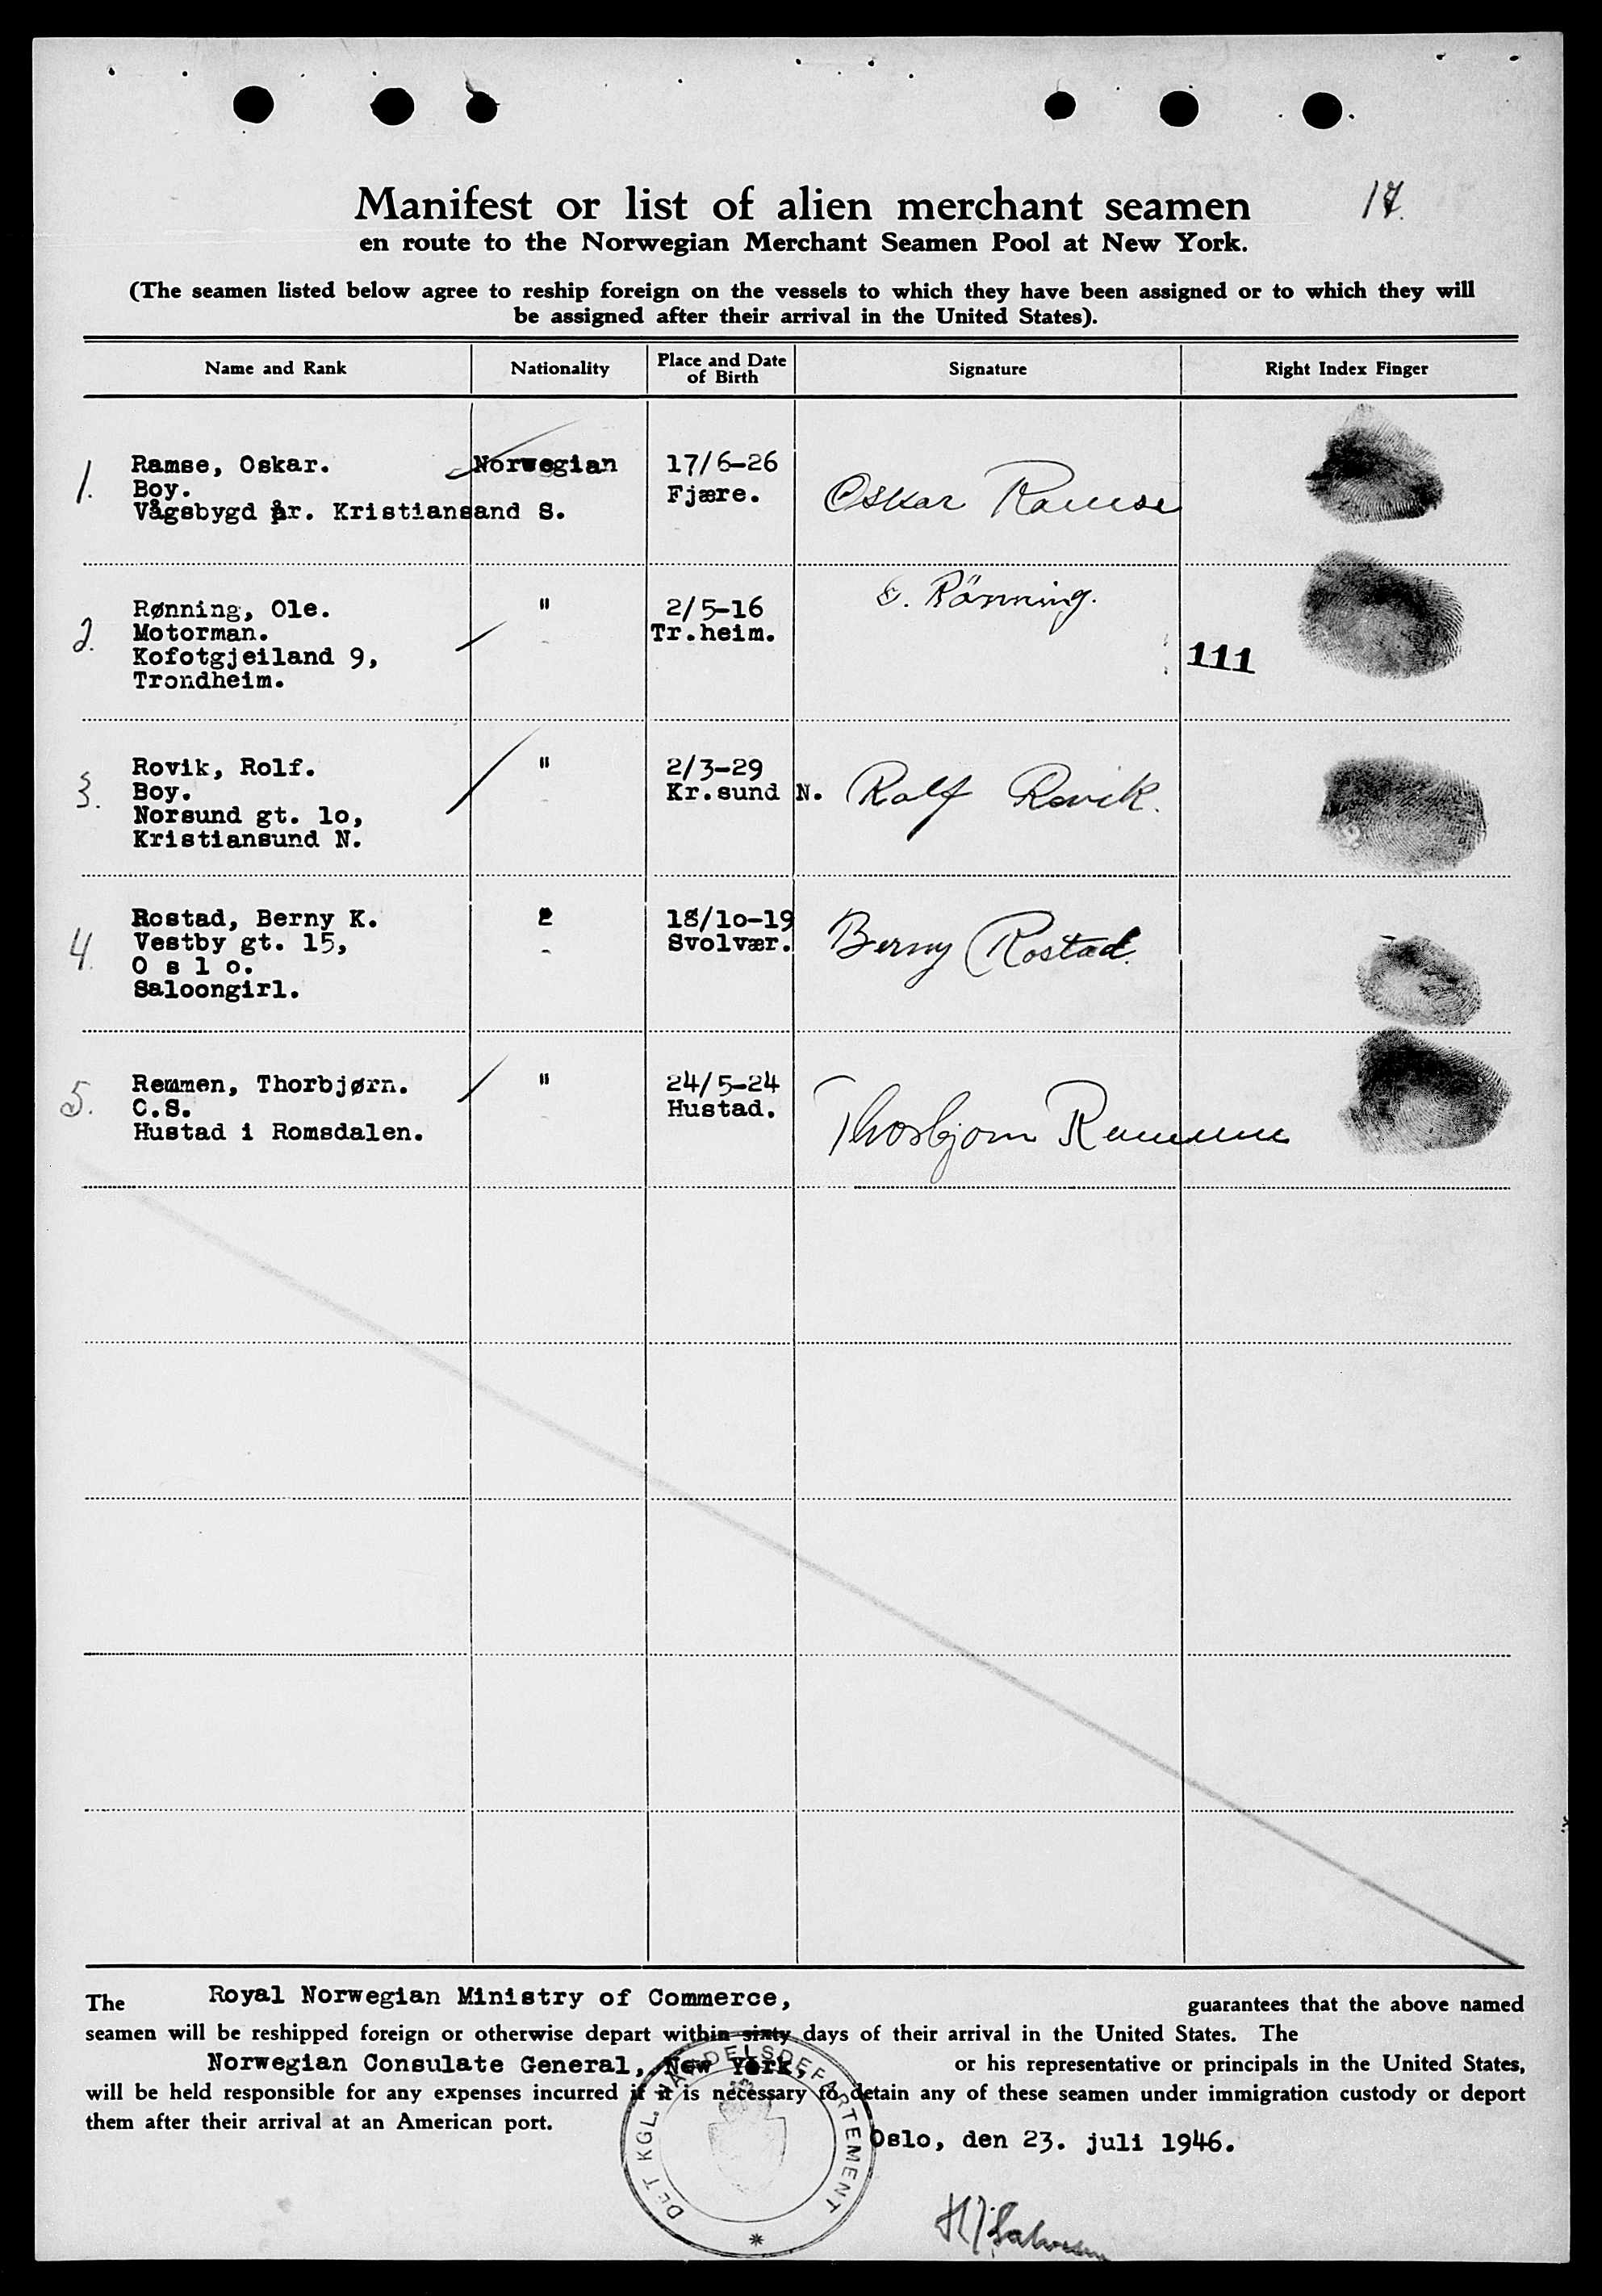 17.
Manifest or list of alien merchant seamen
en route to the Norwegian Merchant Seamen Pool at New York.
(The seamen listed below agree to reship foreign on the vessels to which they have been assigned or to which they will
be assigned after their arrival in the United States).
Name and Rank Nationality Place and Date of Birth Signature Right Index Finger
1. Ramse, Oskar. Norwegian 17/6-26
Boy. Fjære. Oskar Ramse
Vågsbygd pr. Kristiansand S.
2. Rønning, Ole. " 2/5-16 O. Rönning.
Motorman. Tr.heim.
Kofotgjeiland 9, 111
Trondheim.
3. Rovik, Rolf. " 2/3-29
Boy. Kr.sund N. Rolf Rovik.
Norsund gt. 1o,
Kristiansund N.
4. Rostad, Berny K. " 18/1o-19
Vestby gt. 15, Svolvær. Berny Rostad.
O s l o.
Saloongirl.
5. Remmen, Thorbjørn. " 24/5-24
C.S. Hustad. Thorbjorn Remmen
Hustad i Romsdalen.
The Royal Norwegian Ministry of Commerce, guarantees that the above named
seamen will be reshipped foreign or otherwise depart within sixty days of their arrival in the United States. The
Norwegian Consulate General, New York, or his representative or principals in the United States,
will be held responsible for any expenses incurred if it is necessary to detain any of these seamen under immigration custody or deport
them after their arrival at an American port.
DET KGL. HANDELSDEPARTEMENT
Oslo, den 23. juli 1946.